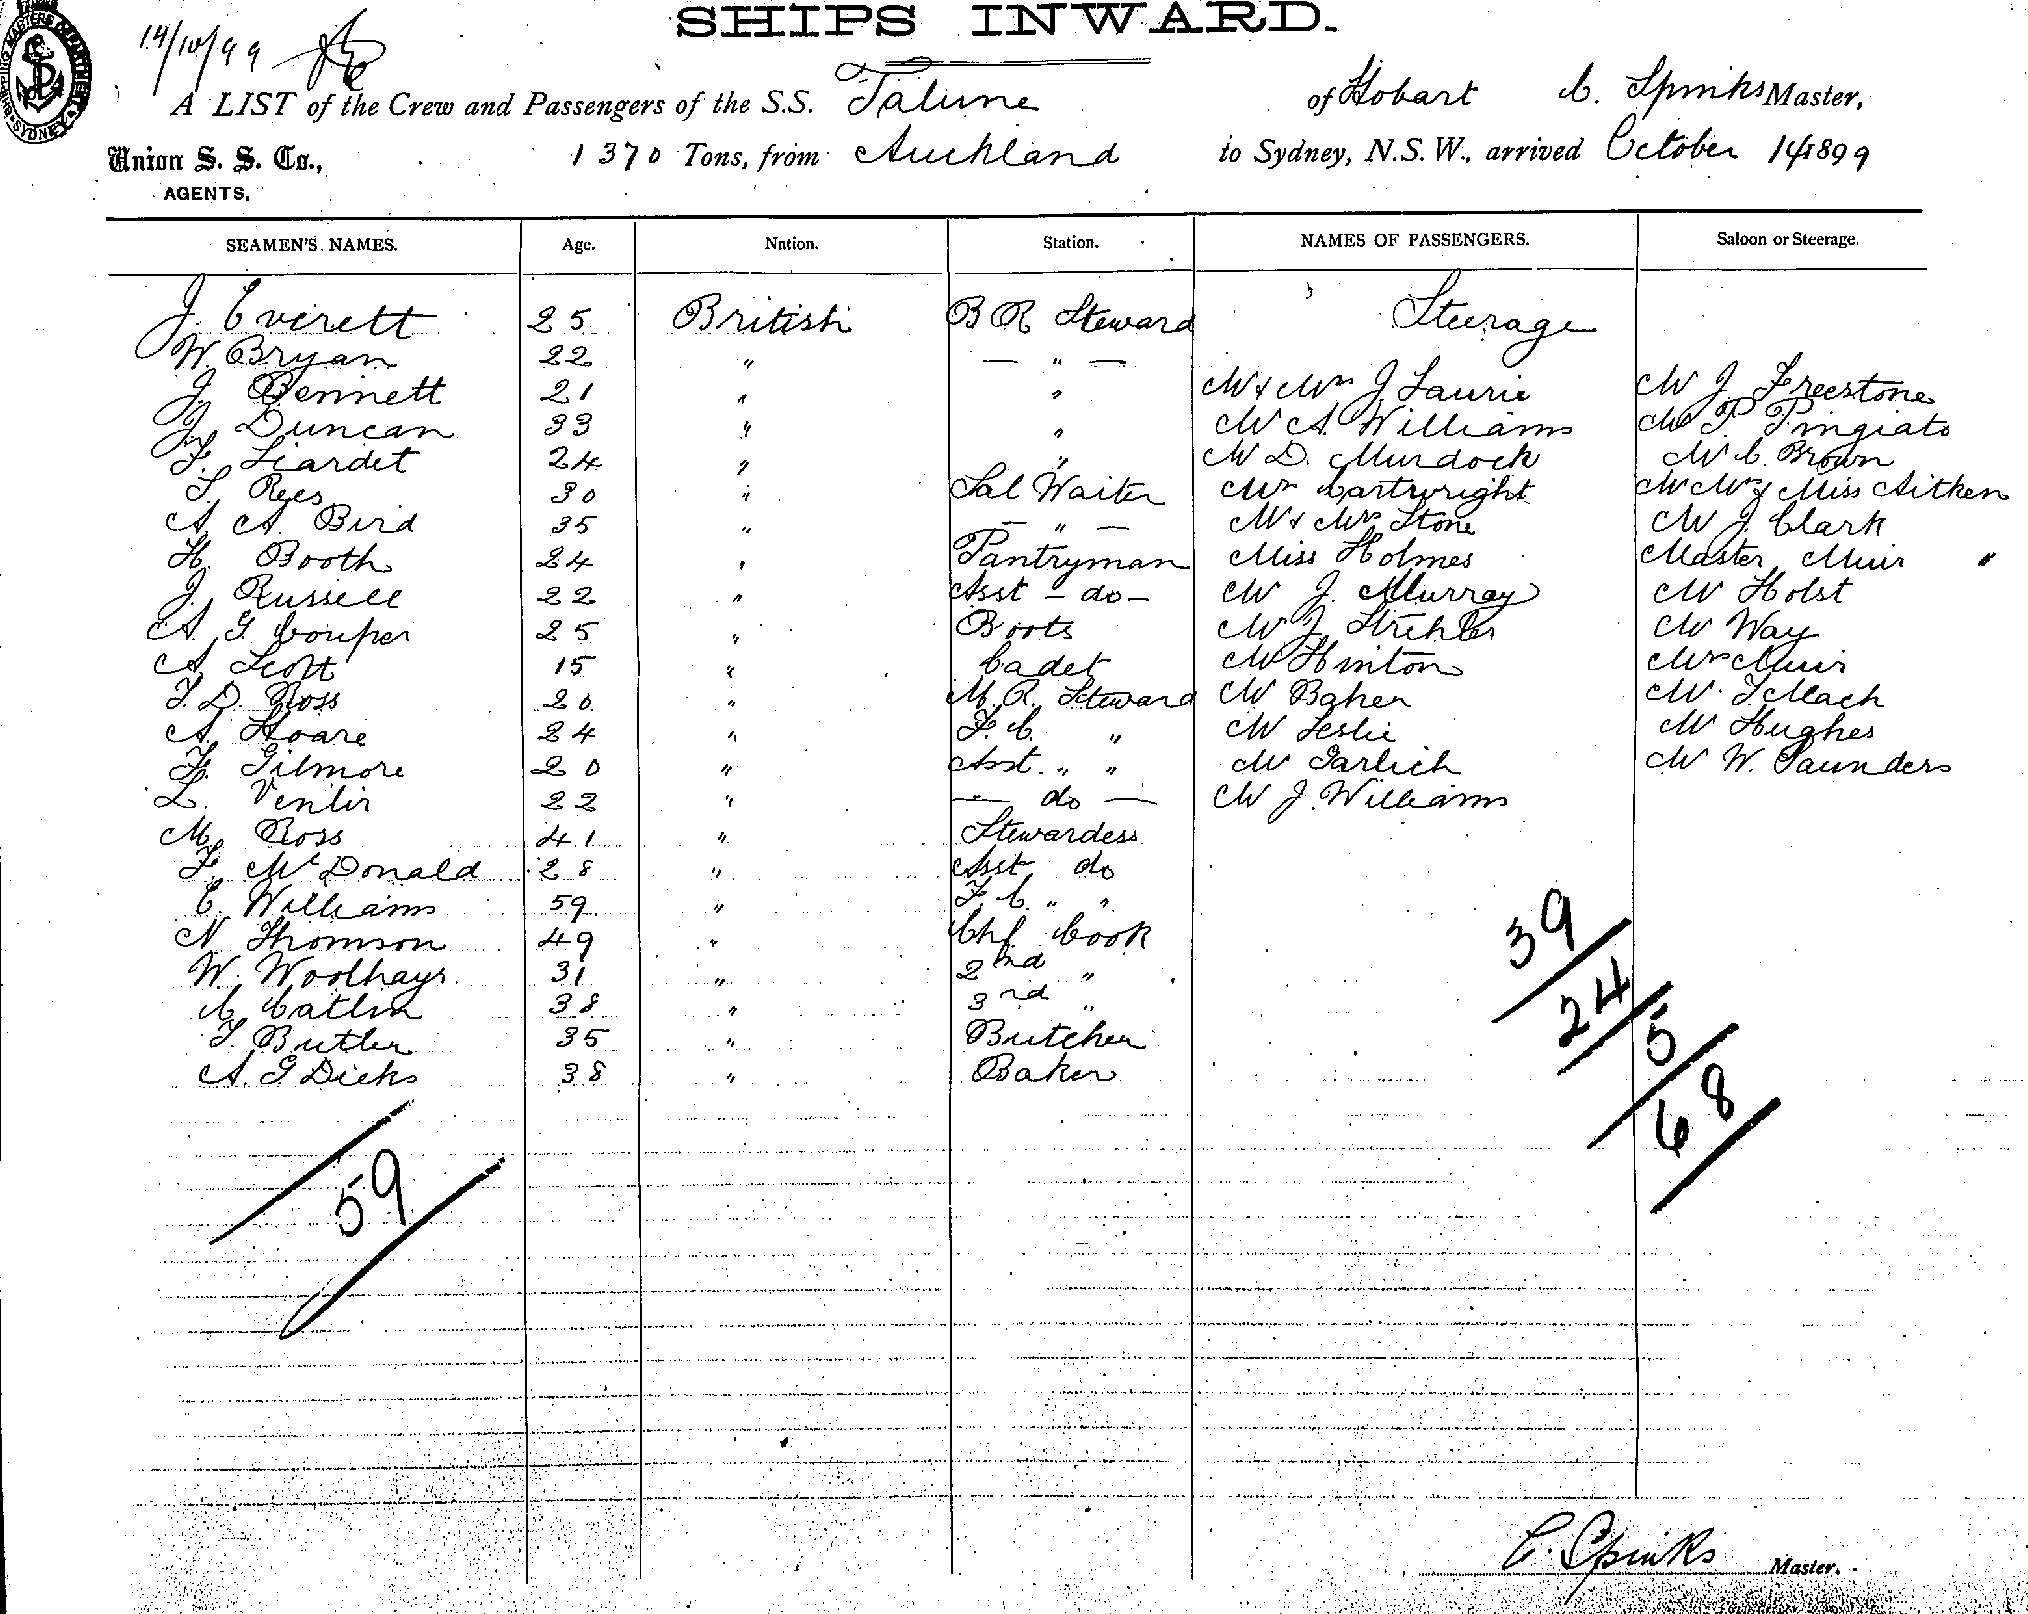 SHIPS INWARD.
14/10/99
A LIST of the Crew and Passengers of the S.S. Talune of Hobart C. Spinks Master,
Union S. S. Co., 1370 Tons, from Auckland to Sydney, N.S.W., arrived October 14 1899
AGENTS.
SEAMEN'S NAMES. Age. Nation. Station. NAMES OF PASSENGERS. Saloon or Steerage.
J. Everett 25 British B R Steward Steerage
W. Bryan 22 " — " —
J. Bennett 21 " " Mr & Mrs J Laurie Mr J Freestone
J. Duncan 33 " " Mr A. Williams Mr P. Pingiato
F. Liardet 24 " " Mr D. Murdock Mr C. Brown
T. Rees 30 " Sal Waiter Mrs Cartwright Mr Mrs & Miss Aitken
A. A. Bird 35 " — " — Mr & Mrs Stone Mr J. Clark
H. Booth 24 " Pantryman Miss Holmes Master Muir
J. Russell 22 " Asst - do - Mr J. Murray Mr Holst
A. G. Couper 25 " Boots Mr J. Mr Way
A. Scott 15 " Cadet Mr Hinton Mrs Muir
T. D. Ross 20 " M. R. Steward Mr Baker Mr
A. Hoare 24 " F. C. " Mr Leslie Mr Hughes
F. Gilmore 20 " Asst. " " Mr Garlich Mr W. Saunders
L. 22 " — do — Mr J. Williams
M. Ross 41 " Stewardess
F. McDonald 28 " Asst do
E. Williams 59 " F. C. " "
N Thomson 49 " Chf Cook
W. Woolhays 31 " 2nd "
C. Catlin 38 " 3rd "
T. Butler 35 " Butcher
A. G Dicks 38 " Baker
39
24
5
68
59
C. Spinks Master.